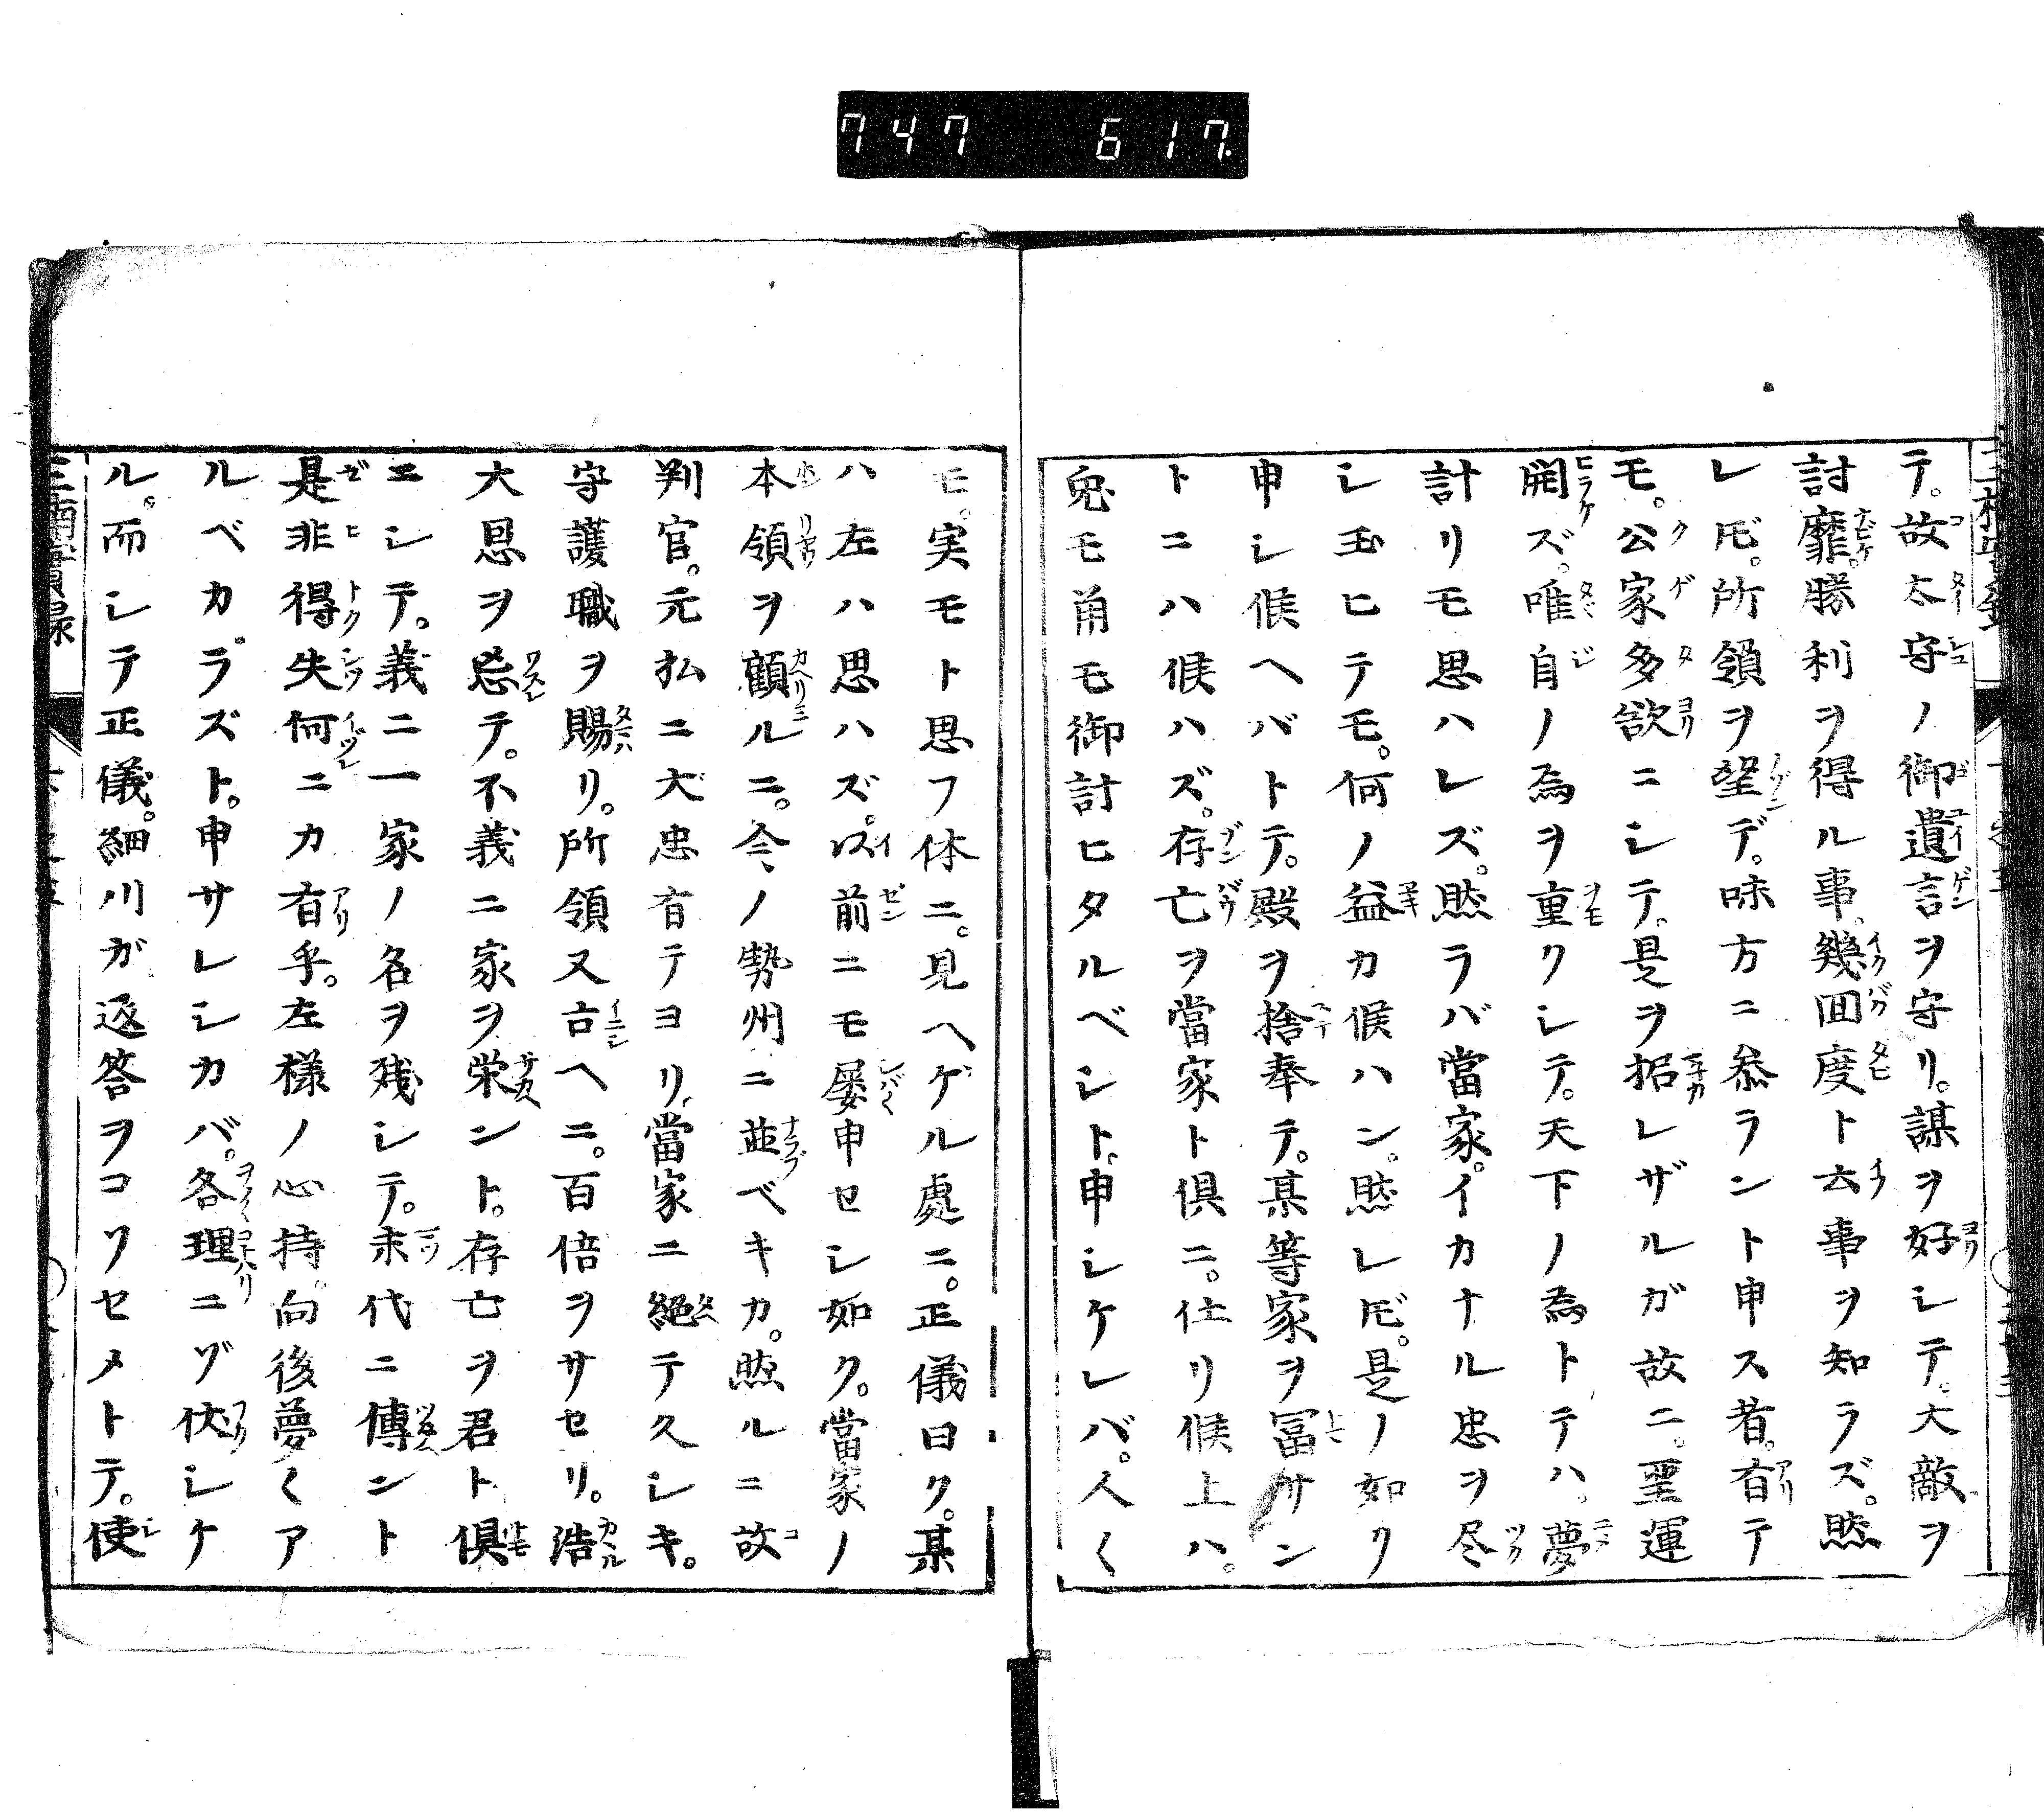 747 617
テ。故太守ノ御遺言ヲ守リ。謀ヲ好シテ。大敵ヲ
討靡。勝利ヲ得ル事。幾囬度ト云事ヲ知ラズ。然
レ𪜈。所領ヲ望デ。味方ニ参ラント申ス者。有テ
モ。公家多欲ニシテ。是ヲ招レザルガ故ニ。聖運
開ズ。唯自ノ為ヲ重クシテ。天下ノ為トテハ。夢
計リモ思ハレズ。然ラバ當家。イカナル忠ヲ尽
シ玉ヒテモ。何ノ益カ候ハン。然レ𪜈。是ノ如ク
申シ候ヘバトテ。殿ヲ捨奉テ。某等家ヲ冨サン
トニハ候ハズ。存亡ヲ當家ト倶ニ。仕リ候上ハ。
兎モ角モ御計ヒタルベシト。申シケレバ。人〱
モ。実モト思フ体ニ。見ヘゲル處ニ。正儀曰ク。某
ハ左ハ思ハズ。以前ニモ屡申セシ如ク。當家ノ
本領ヲ顧ルニ。今ノ勢州ニ並ベキカ。然ルニ故
判官。元弘ニ大忠有テヨリ。當家ニ絕テ久シキ。
守護職ヲ賜リ。所領又古ヘニ。百倍ヲサセリ。浩
大恩ヲ忘テ。不義ニ家ヲ栄ント。存亡ヲ君ト倶
ニシテ。義ニ一家ノ名ヲ残シテ。末代ニ傳ント
是非得失何ニカ有乎。左様ノ心持。向後夢〱ア
ルベカラズト。申サレシカバ。各理ニゾ伏シケ
ル。而シテ正儀。細川ガ返答ヲコワセメトテ。使